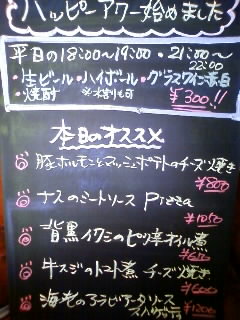 ハッピーアワー始めました
平日の18:00〜19:00・21:00〜
22:00
・生ビール・ハイボール・グラスワイン赤白
・焼酎 ※水割も可
¥300!!
本日のオススメ
豚ホルモンとマッシュポテトのチーズ焼き
¥800
ナスのミートソース Pizza
¥1050
背黒イワシのピリ辛オイル煮
¥650
牛スジのトマト煮 チーズ焼き
¥600
海老のアラビアータソース
スパゲッティ
¥1200